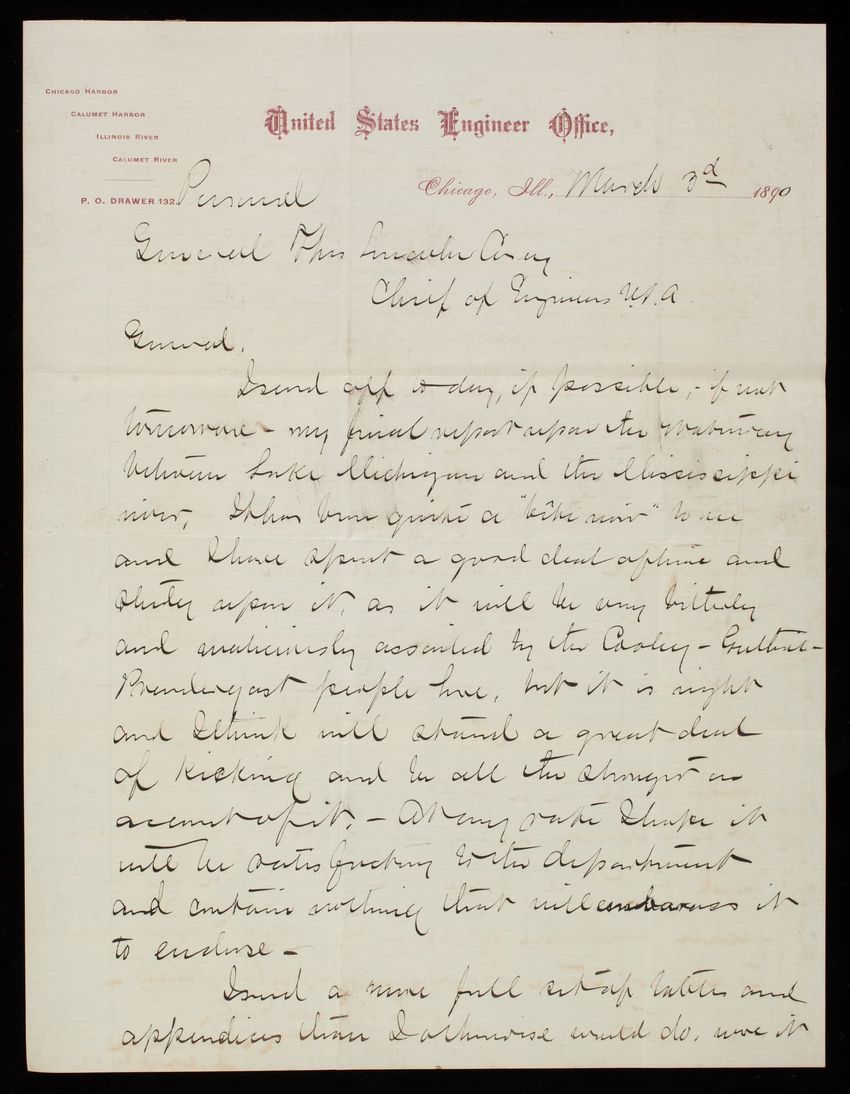 CHICAGO HARBOR
CALUMET HARBOR
ILLINOIS RIVER
CALUMET RIVER
P. O. DRAWER 132.
United States Engineer Office,
Chicago, Ill., March 3d 1890
Personal
General Thos Lincoln Casey
Chief of Engineers U.S.A.
General.
I send off to-day, if possible, - if not
tomorrow - my final report upon the waterway
between Lake Michigan and the Mississippi
river, It has been quite a "bête noir" to me
and I have spent a good deal of time and
study upon it, as it will be very bitterly
and maliciously assailed by the Cooley -
Prendergast people here, but it is right
and I think will stand a great deal
of kicking and be all the stronger on
account of it. - At any rate I hope it
will be satisfactory to the department
and contain nothing that will embarrass it
to endorse -
I send a more full set of tables and
appendices than I otherwise would do, were it